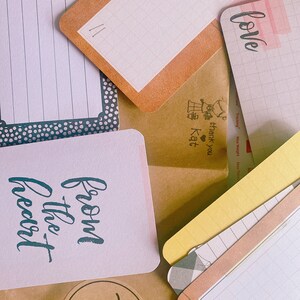 love
thank you
Kat
from
the
heart